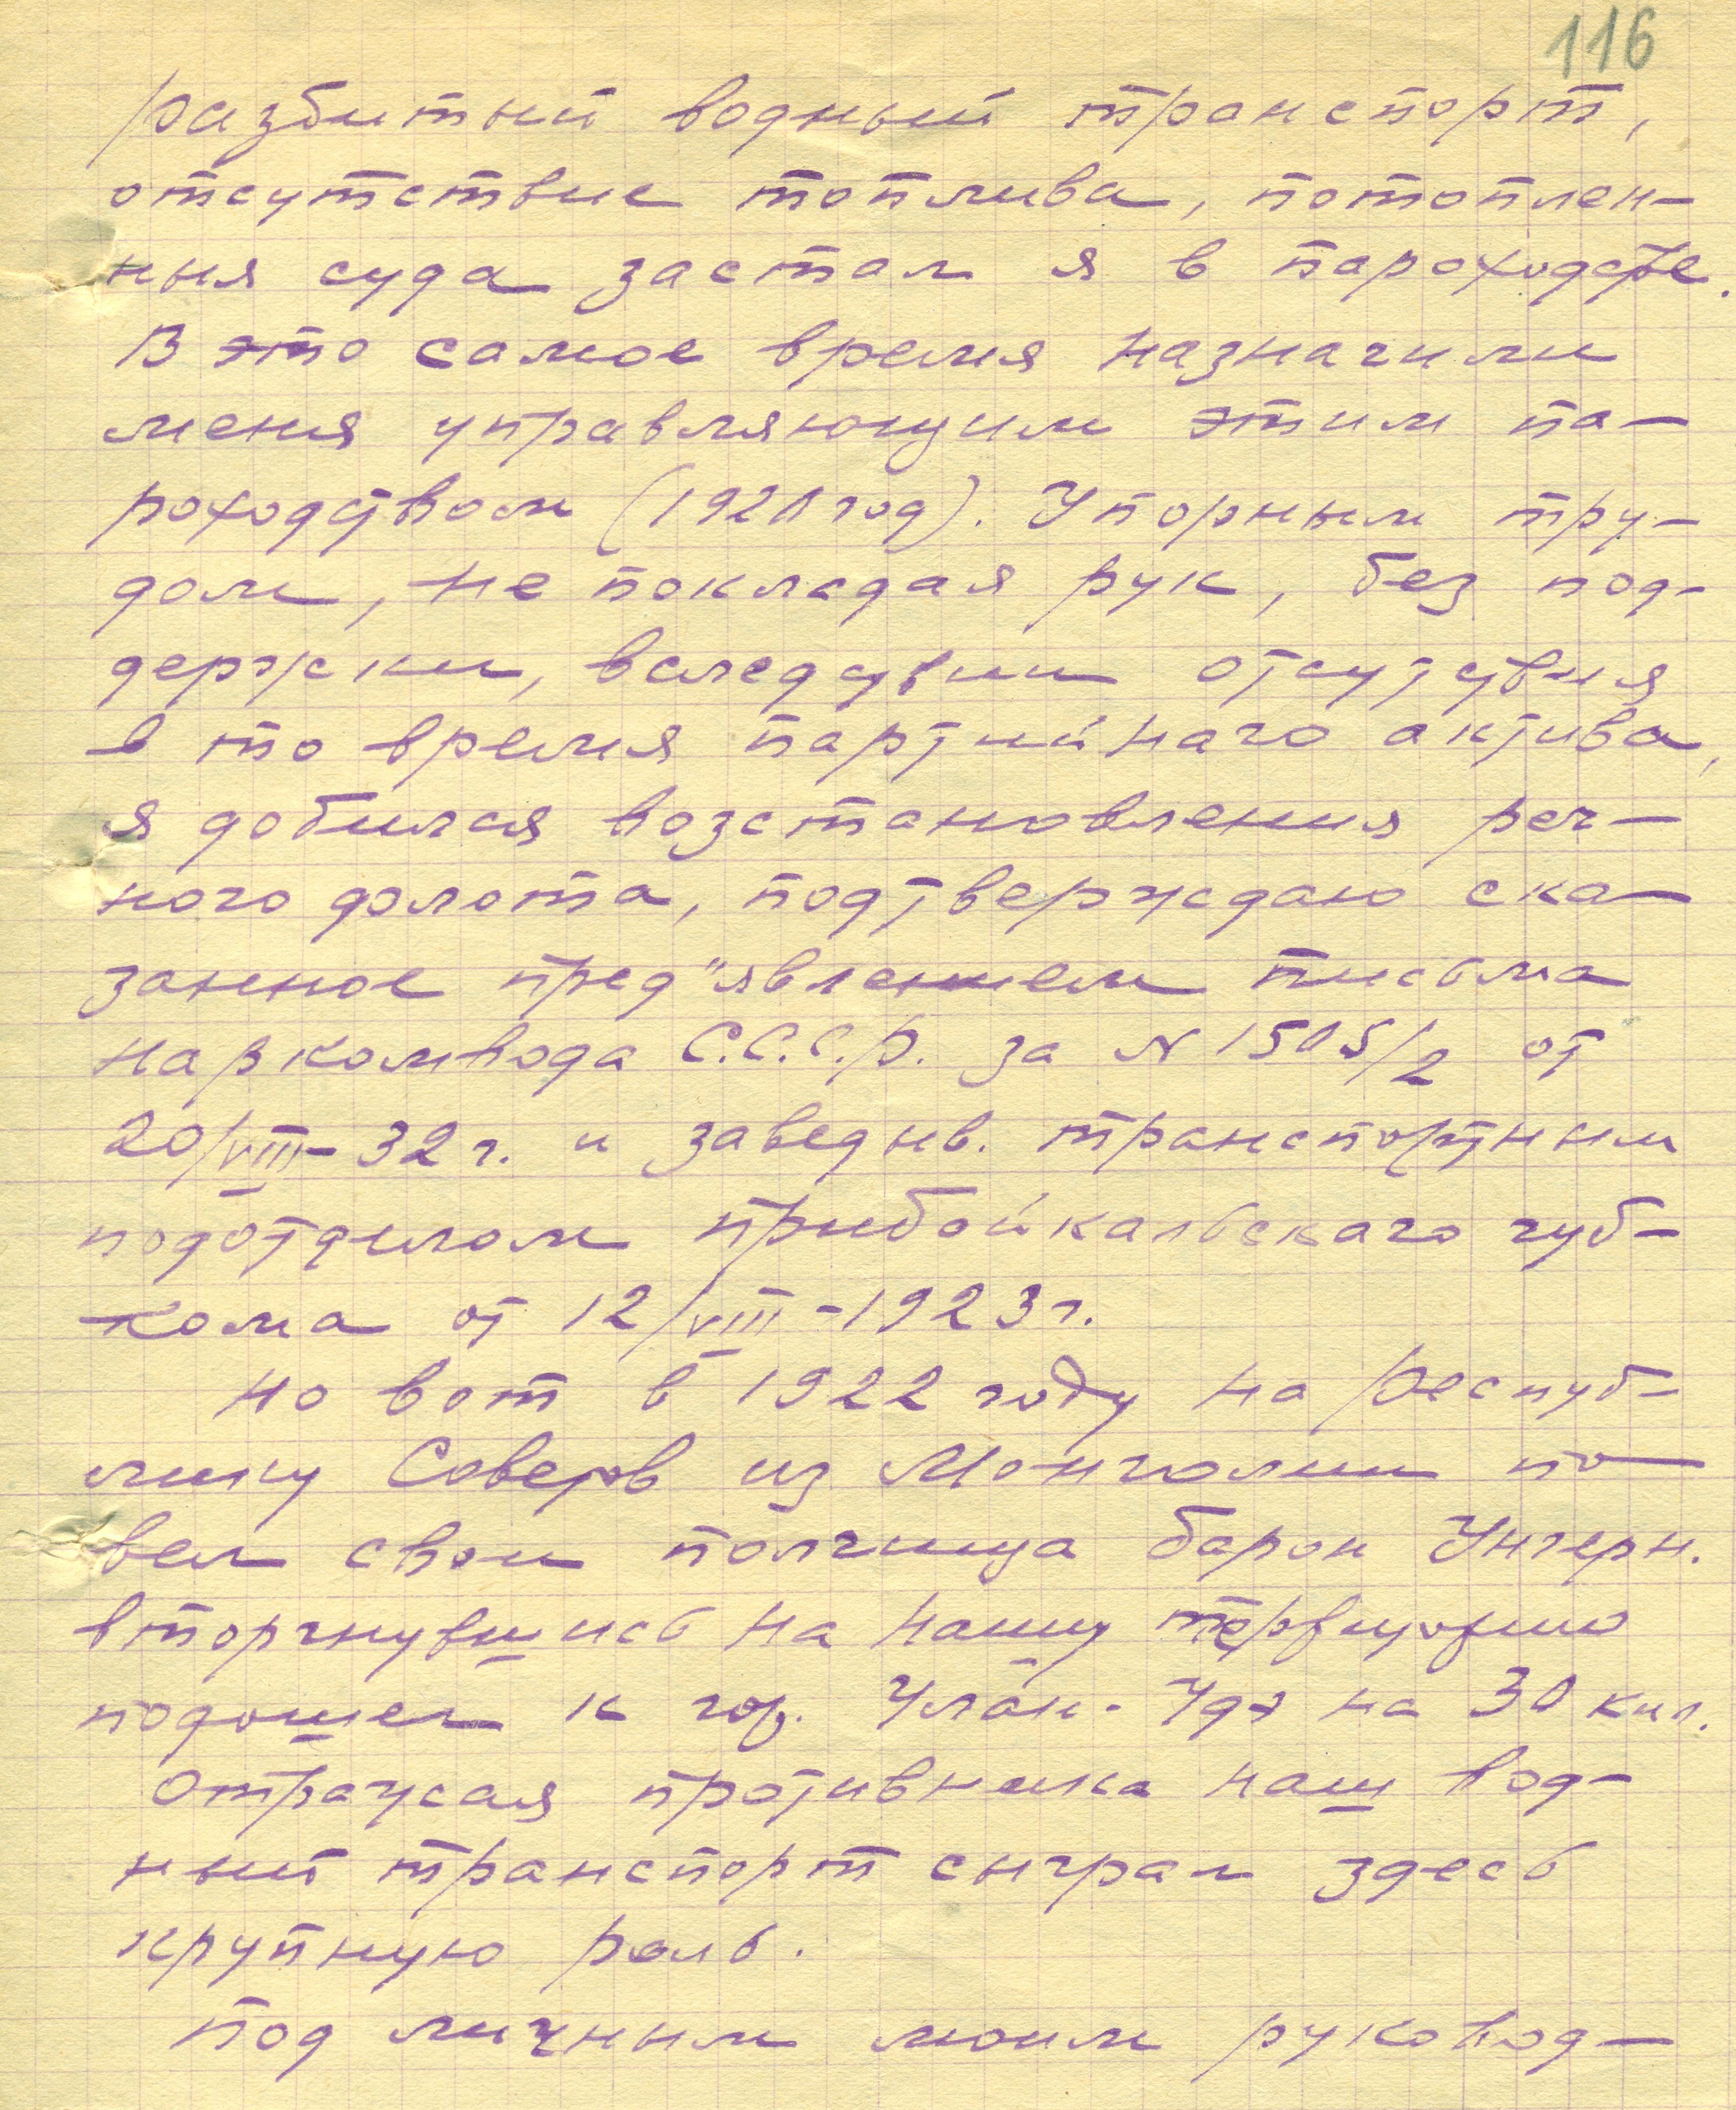 116
разбитый водный транспорт,
отсутствие топлива, потоплен-
ныя суда застал я в пароходстве.
В это самое время назначили
меня управляющим этим па-
роходством (1921 год). Упорным тру-
дом, не покладая рук, без под-
держки, вследствии отсутствия
в то время партийнаго актива,
я добился возстановления реч-
ного долота, подтверждаю ска-
занное пред"явлением письма
Наркомвода С.С.С.Р. за N 1505/2 от
20/VIII-32 г. и заведыв. транспортным
подотделом прибайкальскаго губ-
кома от 12/VIII-1923 г.
Но вот в 1922 году на Респуб-
лику Советов из Монголии по-
вел свои полчища барон Унгерн.
вторгнувшись на нашу территорию
подошел к гор. Улан-Удэ на 30 кил.
Отражая противника наш вод-
ный транспорт сыграл здесь
крупную роль.
Под личным моим руковод-